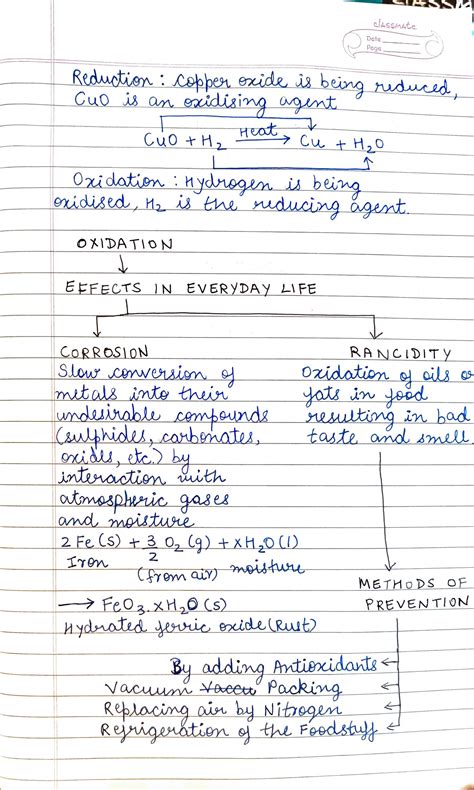 classmate
Date
Page
Reduction : Copper oxide is being reduced,
CuO is an oxidising agent
CuO + H₂ Heat → Cu + H₂O
Oxidation : Hydrogen is being
oxidised, H₂ is the reducing agent.
OXIDATION
EFFECTS IN EVERYDAY LIFE
CORROSION
Slow conversion of
metals into their
undesirable compounds
(sulphides, carbonates,
oxides, etc.) by
interaction with
atmospheric gases
and moisture
2 Fe (s) + 3/2 O₂ (g) + xH₂O (l)
Iron (from air) moisture
→ FeO₃.xH₂O (s)
Hydrated ferric oxide (Rust)
RANCIDITY
Oxidation of oils or
fats in food
resulting in bad
taste and smell.
METHODS OF
PREVENTION
By adding Antioxidants
Vacuum Packing
Replacing air by Nitrogen
Refrigeration of the Foodstuff